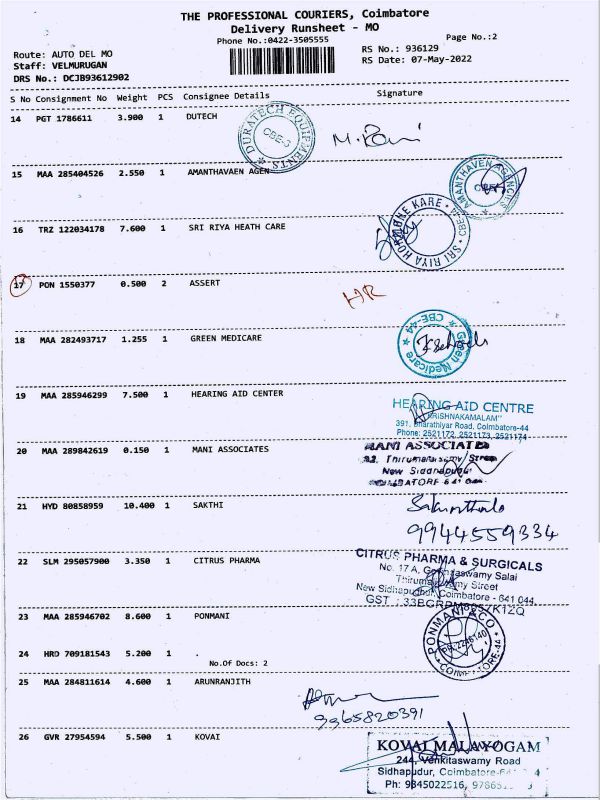 THE PROFESSIONAL COURIERS, Coimbatore
Delivery Runsheet - MO
Phone No.:0422-3505555
Page No.:2
Route: AUTO DEL MO
RS No.: 936129
Staff: VELMURUGAN
RS Date: 07-May-2022
DRS No.: DCJB93612902
S No Consignment No Weight PCS Consignee Details Signature
14 PGT 1786611 3.900 1 DUTECH
DURATECH EQUIPMENTS
CBE-3
M. Pani
15 MAA 285404526 2.550 1 AMANTHAVAEN AGEN
AMANTHAVEN AGENCIES
CBE
16 TRZ 122034178 7.600 1 SRI RIYA HEATH CARE
SRI RIYA HORMONE KARE
17 PON 1550377 0.500 2 ASSERT
HR
18 MAA 282493717 1.255 1 GREEN MEDICARE
Green Medicare
CBE-44
19 MAA 285946299 7.500 1 HEARING AID CENTER
HEARING AID CENTRE
"KRISHNAKAMALAM"
391, Bharathiyar Road, Coimbatore-44
Phone: 2521172, 2521173, 2521174
20 MAA 289842619 0.150 1 MANI ASSOCIATES
MANI ASSOCIATES
New Siddhapudur
21 HYD 80858959 10.400 1 SAKTHI
9944559334
22 SLM 295057900 3.350 1 CITRUS PHARMA
CITRUS PHARMA & SURGICALS
No. 17 A, Govindaswamy Salai
Street
New Sidhapudur, Coimbatore - 641 044.
GST :
23 MAA 285946702 8.600 1 PONMANI
PONMANI & CO
COIMBATORE-44
24 HRD 709181543 5.200 1 .
No.Of Docs: 2
25 MAA 284811614 4.600 1 ARUNRANJITH
9965820391
26 GVR 27954594 5.500 1 KOVAI
KOVAI MALAYOGAM
244, Venkitaswamy Road
Sidhapudur, Coimbatore-
Ph: 9845022516,